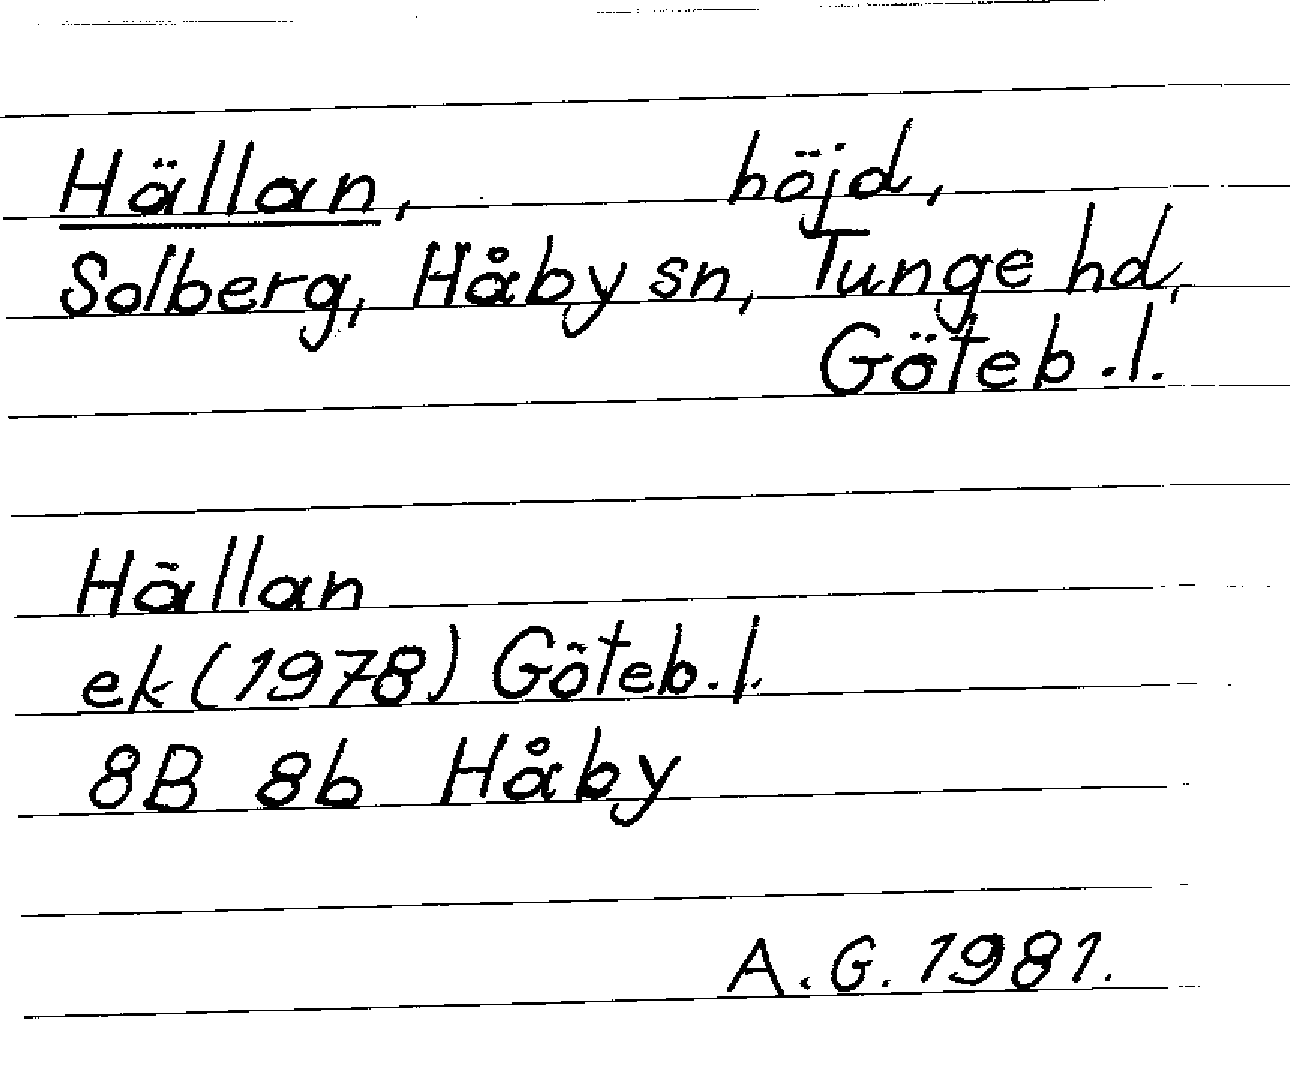 Hällan, höjd,
Solberg, Håby sn, Tunge hd,
Göteb.l.
Hällan
ek (1978) Göteb.l.
8B 8b Håby
A.G. 1981.